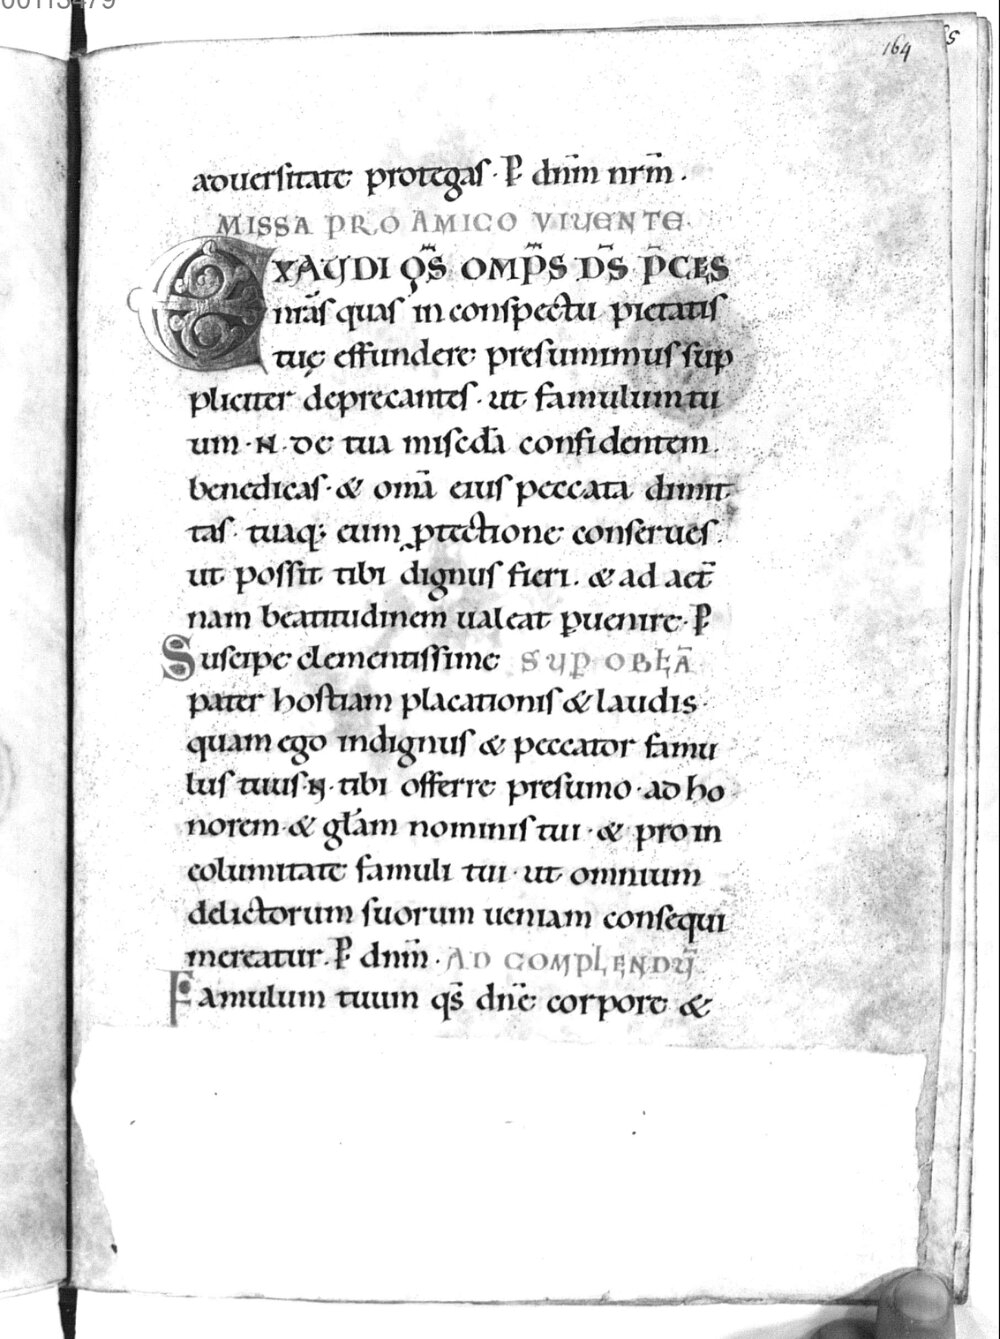 00113479
164
65
aduersitate protegas · P̄ dnm̄ nrm̄ .
MISSA PRO AMICO VIVENTE ·
EXAUDI Q̄S OMP̄S D̄S P̄CES
nrās quas in conspectu pietatis
tuę effundere presumimus sup
pliciter deprecantes · ut famulum tu
um · N · de tua misc̄dia confidentem .
benedicas · & om̄a eius peccata dimit
tas · tuaq; eum ꝓtectione conserues .
ut possit tibi dignus fieri . & ad aet̄
nam beatitudinem ualeat ꝑuenire · P̄
Suscipe clementissime SUP OBLĀ
pater hostiam placationis & laudis ·
quam ego indignus & peccator famu
lus tuus · N · tibi offerre presumo · ad ho
norem · & glām nominis tui · & pro in
columitate famuli tui · ut omnium
delictorum suorum ueniam consequi
mereatur . P̄ dnm̄ · AD COMPLENDŪ
Famulum tuum qs̄ dnē corpore &